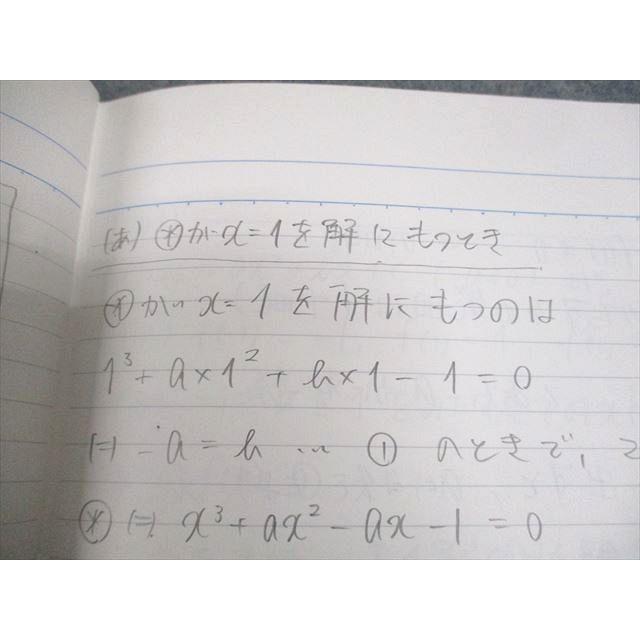 (あ) ⊛が x=1を解にもつとき
⊛が x=1を解にもつのは
1³+a×1²+b×1-1=0
⇔ -a=b … ① のときで、こ
⊛ ⇔ x³+ax²-ax-1=0